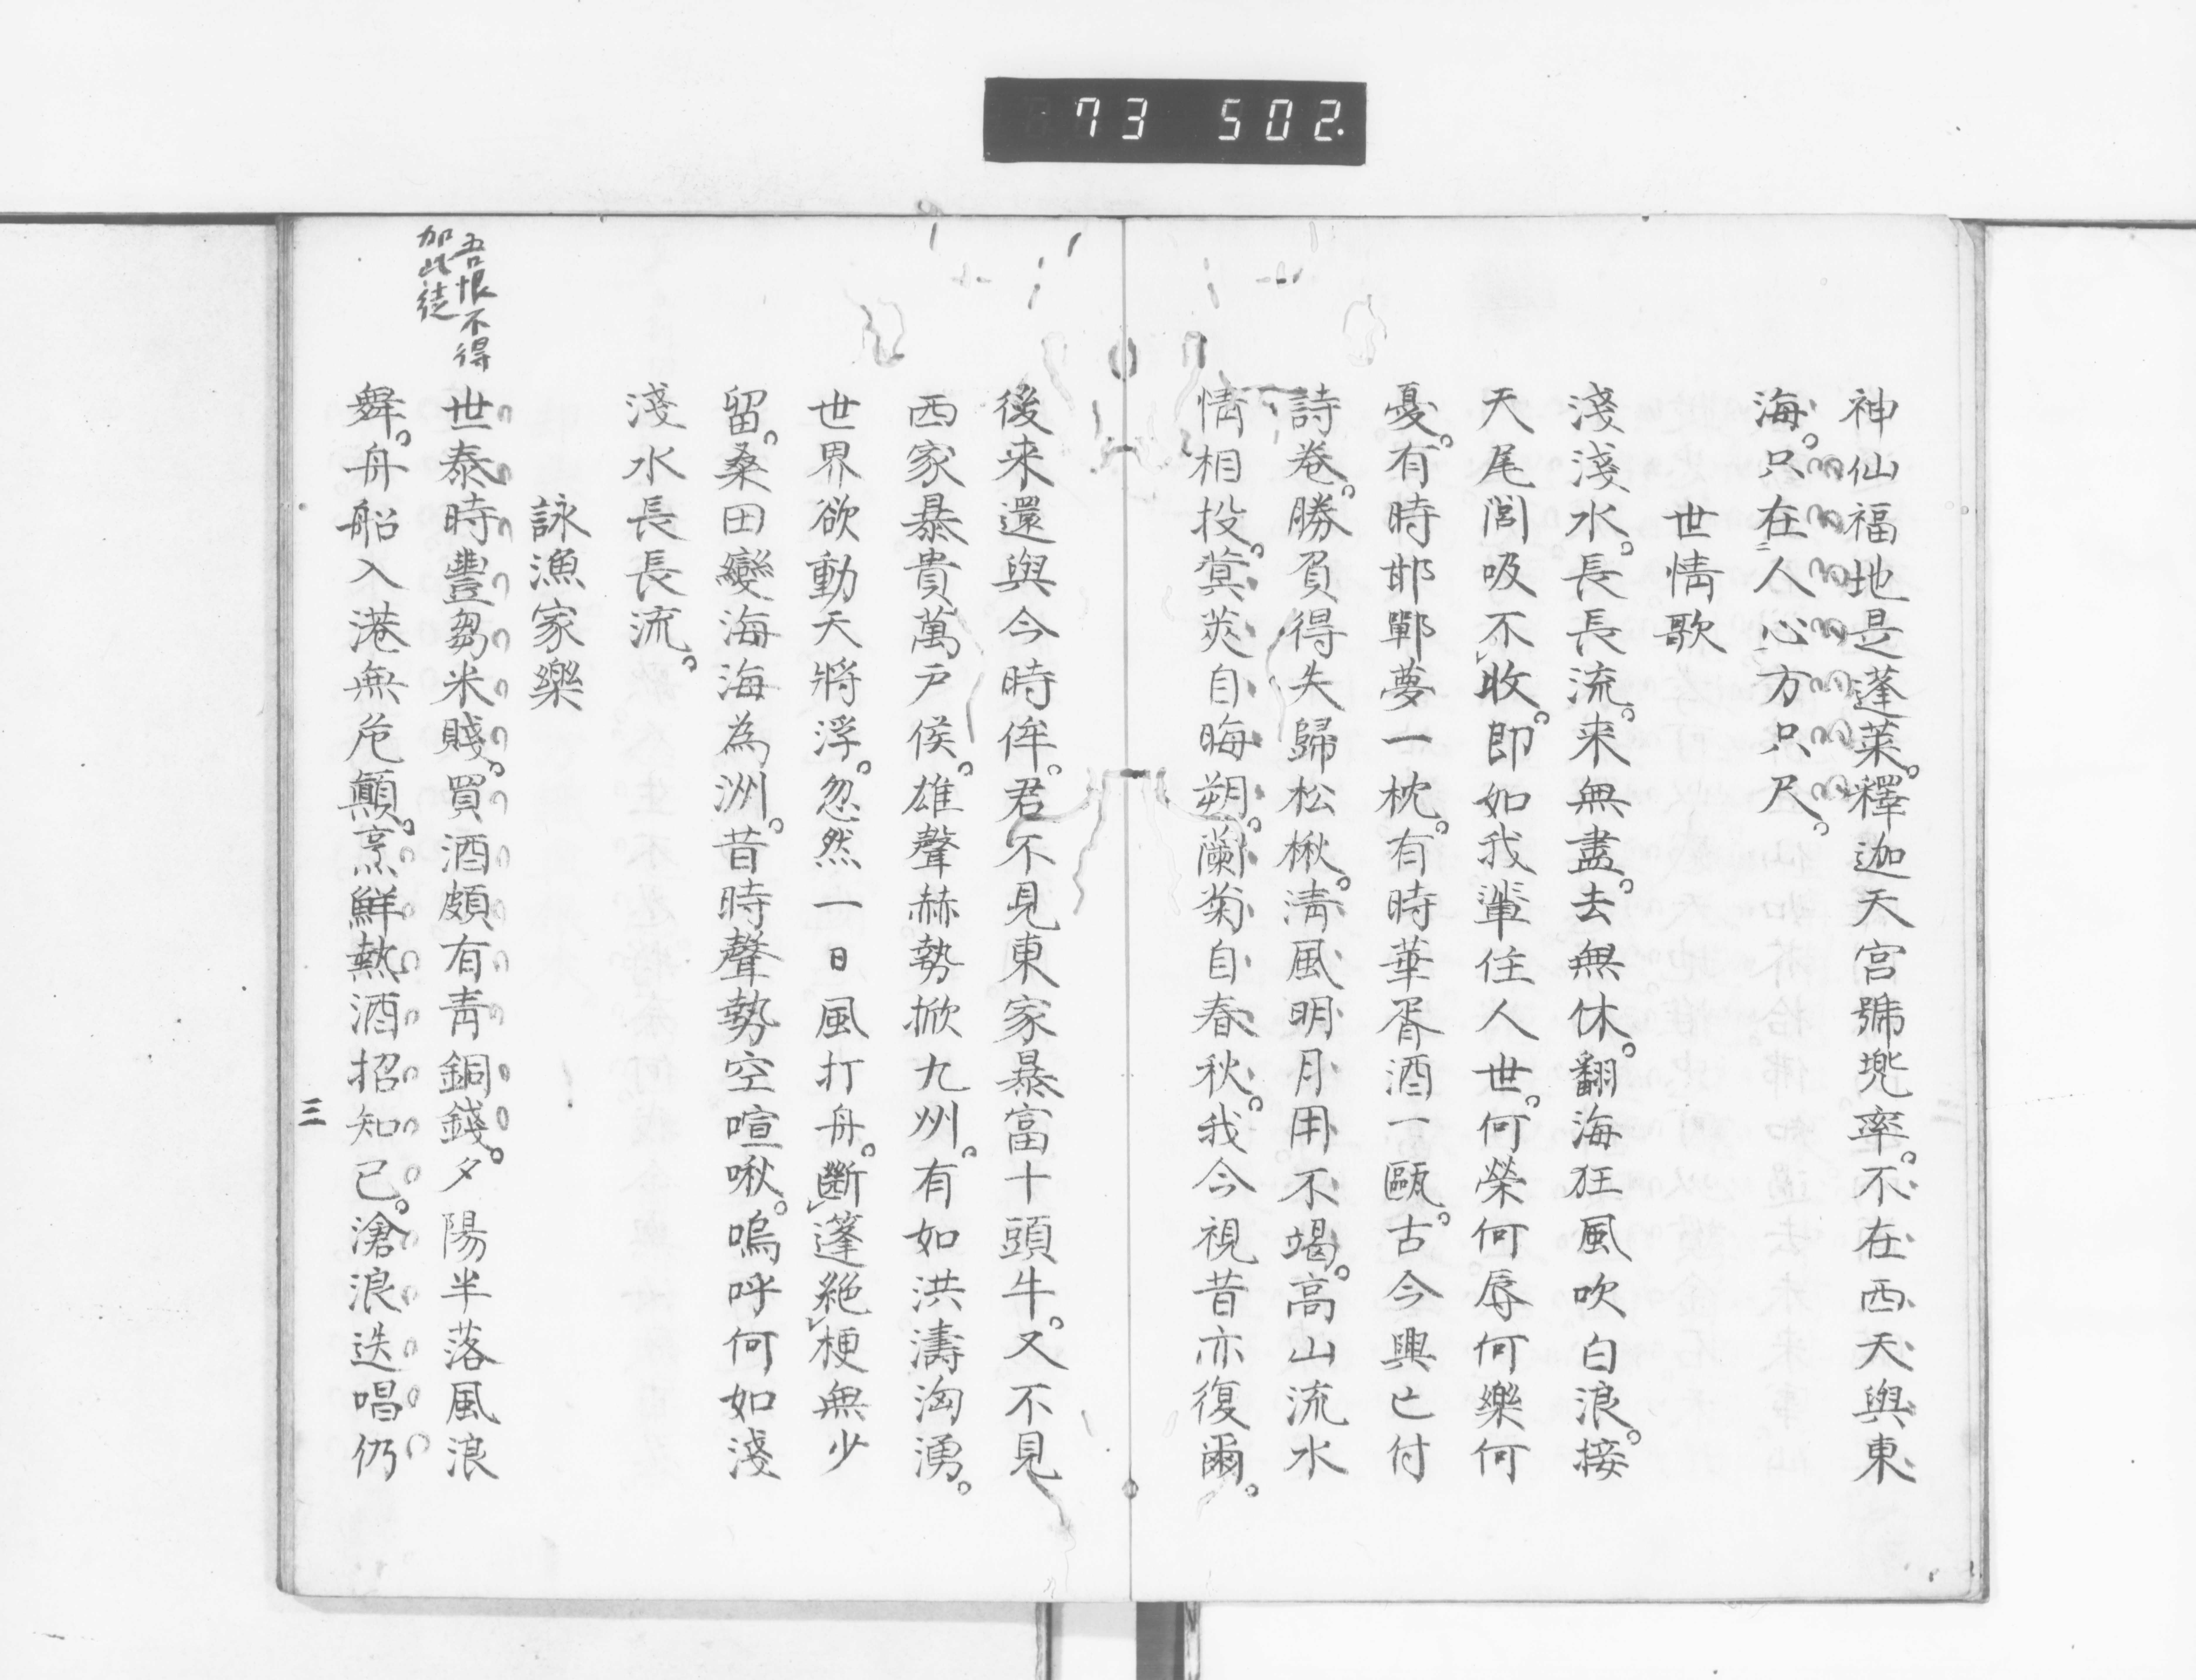 73 502.
神仙福地是蓬萊。釋迦天宮號兜率。不在西天與東
海。只在人心方只尺。
世情歌
淺淺水。長長流。来無盡。去無休。翻海狂風吹白浪。接
天尾閭吸不收。即如我輩住人世。何榮何辱何樂何
憂。有時邯鄲夢一枕。有時華胥酒一甌。古今興亡付
詩卷。勝負得失歸松楸。清風明月用不竭。高山流水
情相投。蓂莢自晦朔。蘭菊自春秋。我今視昔亦復爾。
後来還與今時侔。君不見東家暴富十頭牛。又不見
西家暴貴萬戸侯。雄聲赫勢掀九州。有如洪濤洶湧。
世界欲動天將浮。忽然一日風打舟。斷蓬絕梗無少
留。桑田變海海為洲。昔時聲勢空喧啾。嗚呼何如淺
淺水長長流。
詠漁家樂
吾恨不得
加此徒
世泰時豐芻米賤。買酒頗有青銅錢。夕陽半落風浪
舞。舟船入港無危顛。烹鮮熱酒招知己。滄浪迭唱仍
三